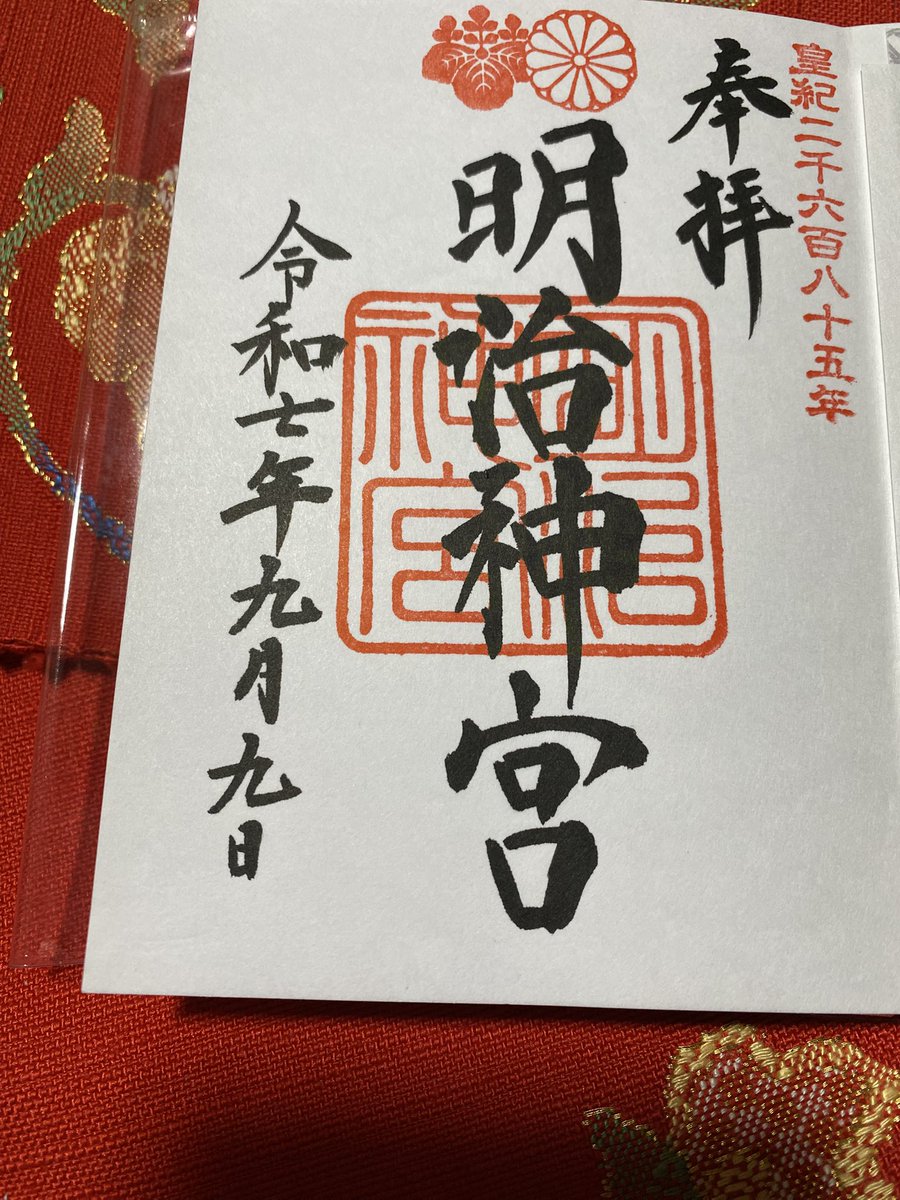 皇紀二千六百八十五年
奉拝
明治神宮
明治神宮
令和七年九月九日